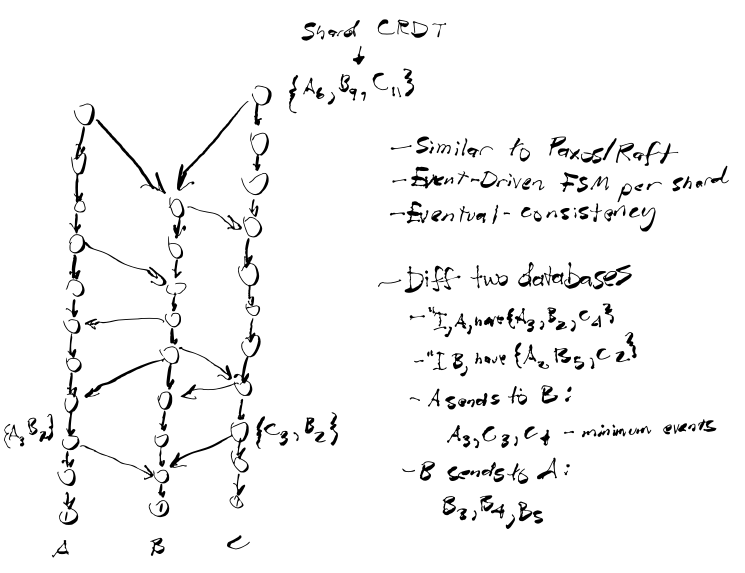 Shard CRDT
{A6, B9, C11}
- Similar to Paxos/Raft
- Event-Driven FSM per shard
- Eventual-consistency
- Diff two databases
- "I, A, have {A3, B2, C4}
- "I B, have {A2 B5, C2}
- A sends to B:
A3, C3, C4 - minimum events
- B sends to A:
B3, B4, B5
{A3 B2}
{C3, B2}
A B C